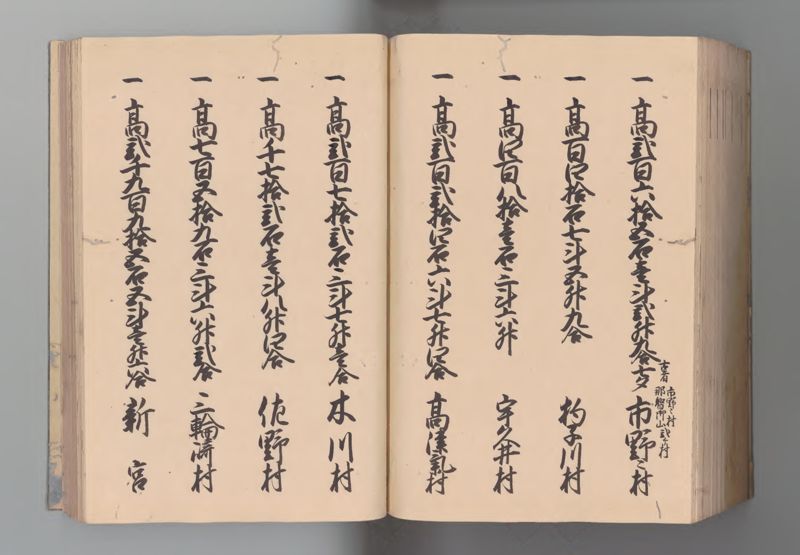 一 高弐百六拾五石壱斗弐升九合 市野々村
古者 市野々村
那智御山 弐ヶ村
一 高百四拾石七斗五升九合 杓子川村
一 高四百八拾壱石三斗六升 宇久井村
一 高弐百弐拾四石六斗七升四合 高津氣村
一 高弐百七拾弐石三斗七升壱合 木川村
一 高千七拾弐石壱斗八升四合 佐野村
一 高七百五拾九石三斗六升弐合 三輪崎村
一 高弐千九百九拾五石五斗壱升六合 新宮